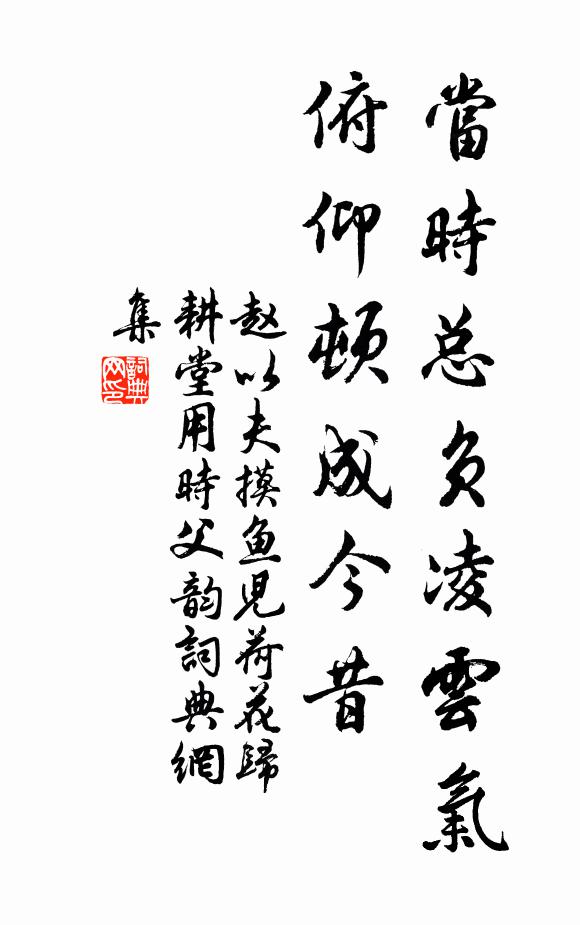 當時总负凌雲氣
俯仰頓成今昔
赵以夫摸鱼児荷花歸
耕堂用時父韵詞典網
集
詞典
网印